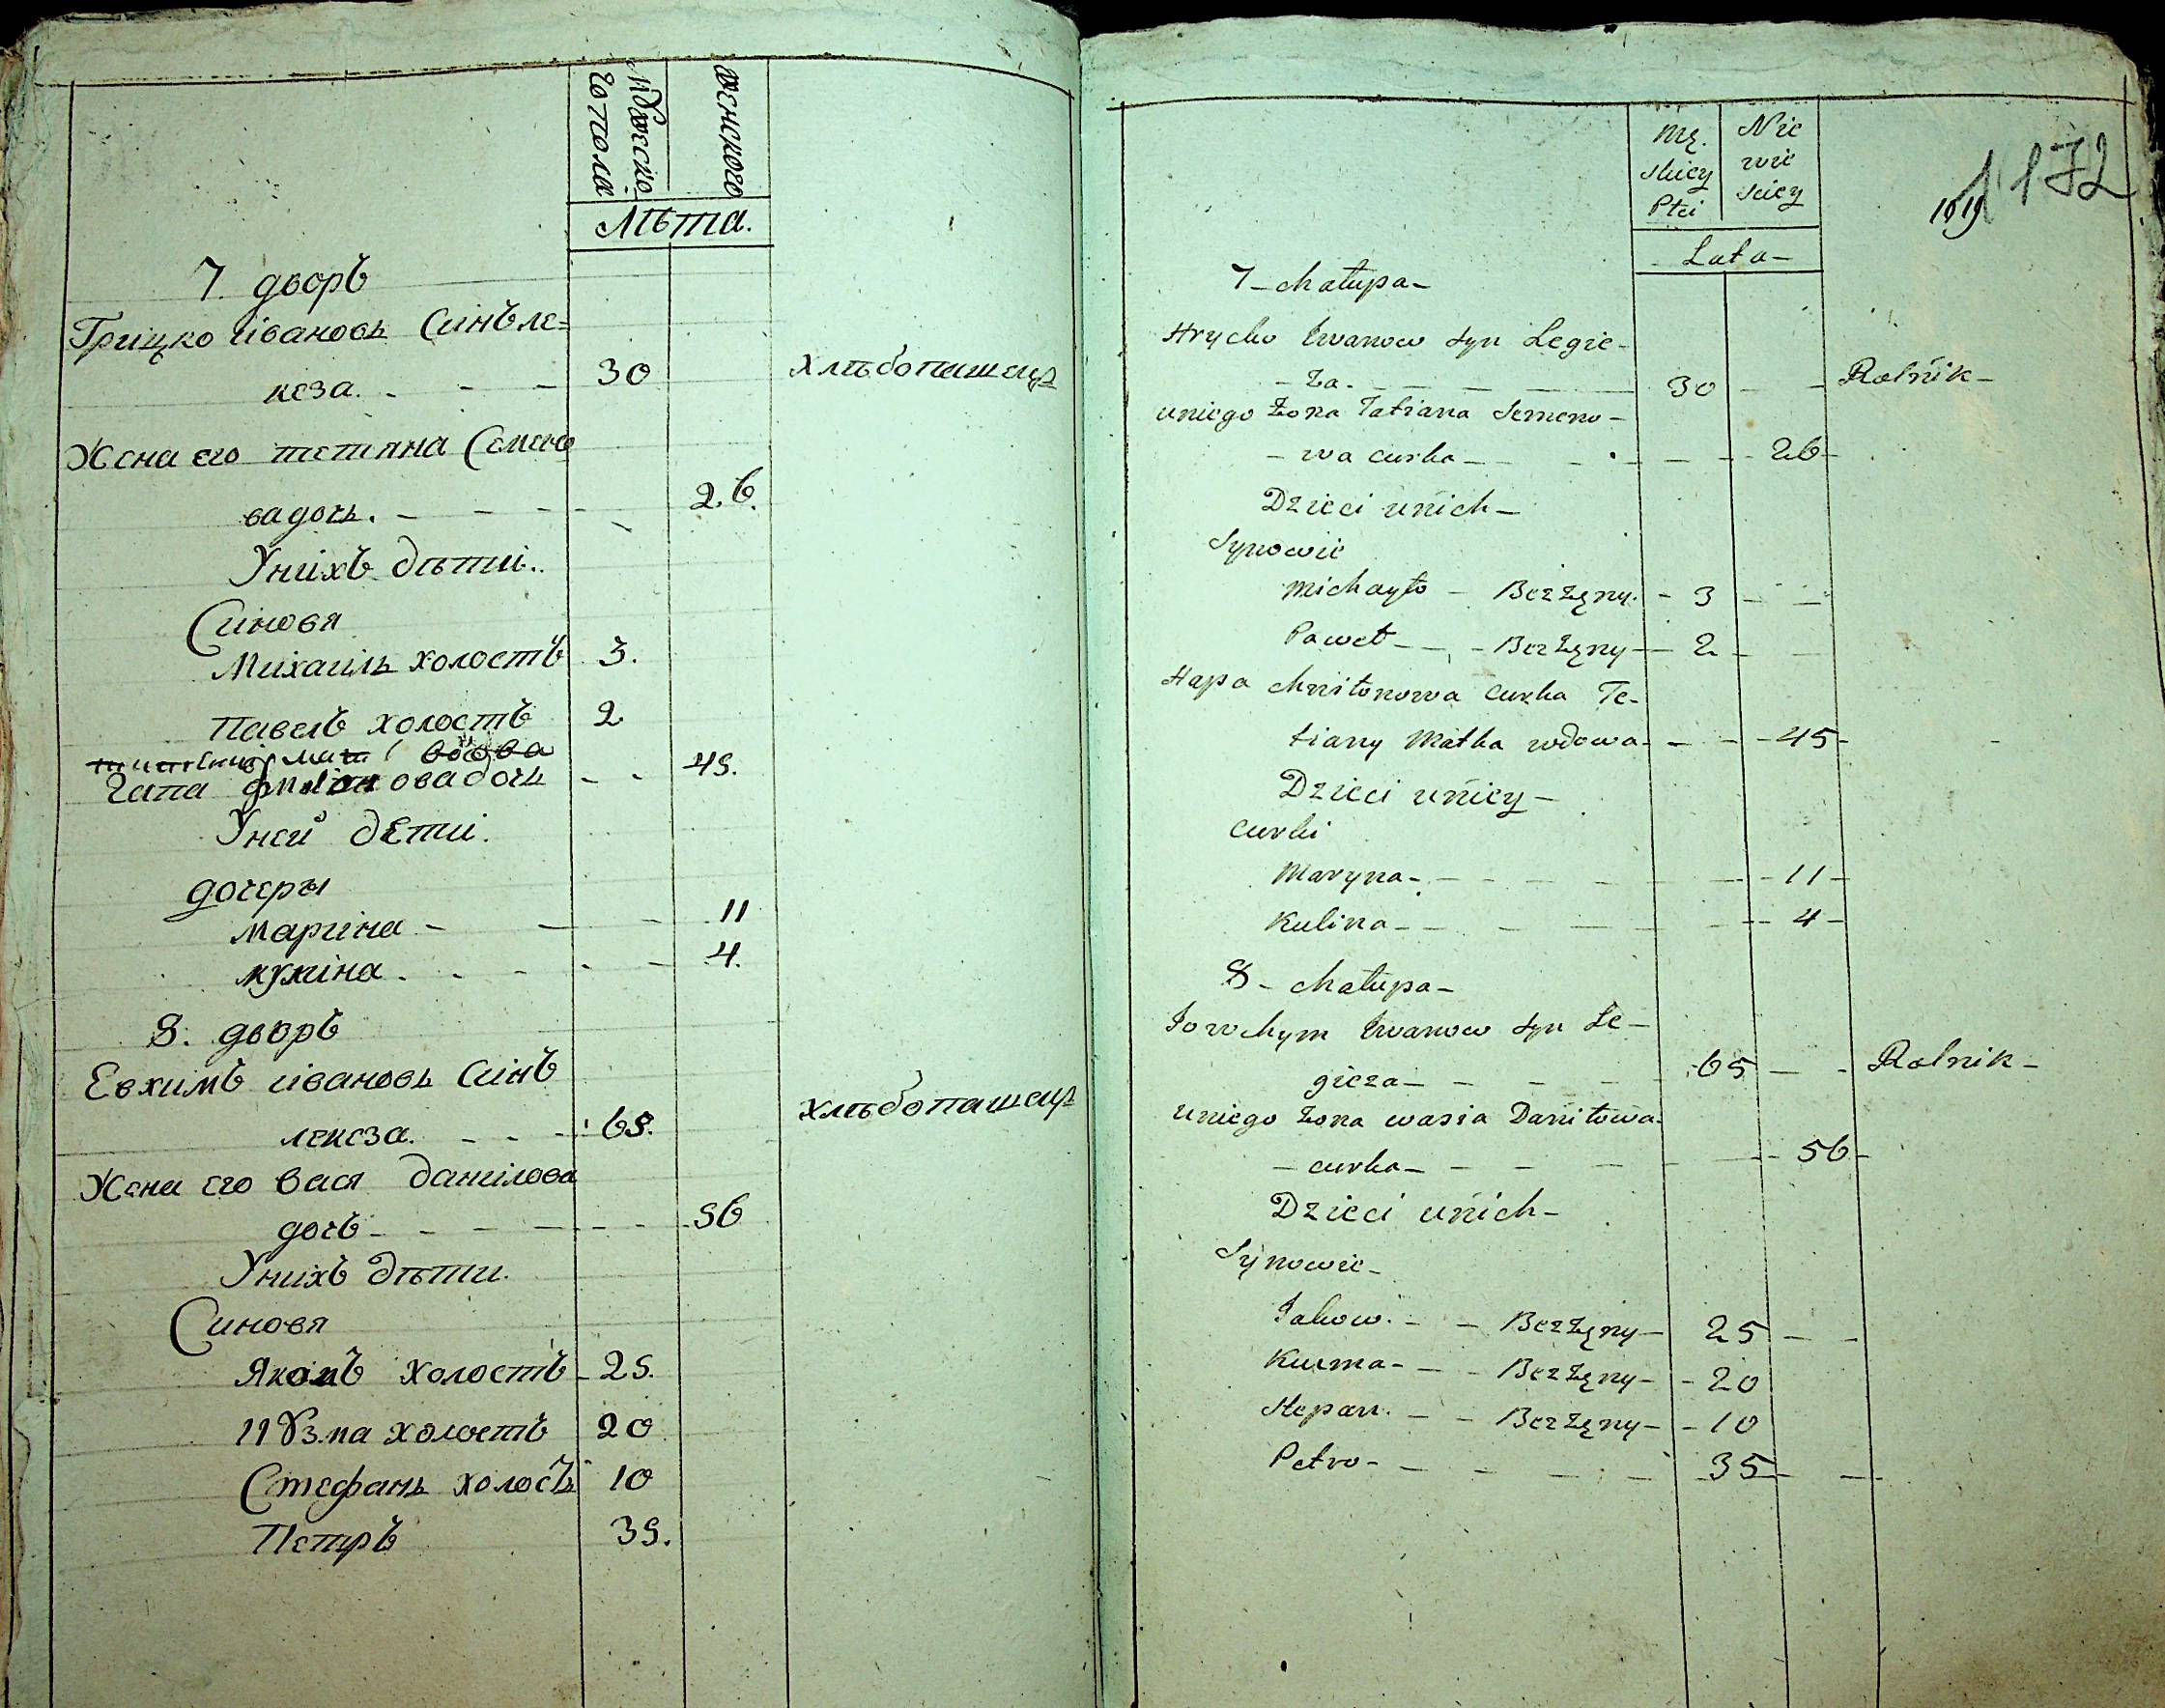 Мужеско-
го пола
женского
Лѣта.
7. дворъ
Грицко Івановъ Синъ ле=
кеза. - - - 30 хлѣбопашецъ
Жена его тетяна Семено
ва дочь. - - - 26.
Унихъ дѣти..
Синовя
Михаилъ холостъ 3.
Павелъ холостъ 2
вдова
Гапа овадочь - - 45.
Уней дѣти.
дочеры
Марина - - - 11
кулина . - - - 4.
8. дворъ
Евхимъ Івановъ Синъ
лекеза. - - - 65. хлѣбопашецъ
Жена его Вася данилова
дочъ - - - - 56
Унихъ дѣти.
Синовя
Яковъ холостъ - 25.
Кузма холостъ 20
Стефанъ холостъ 10
Петръ 35.
Mę.
skiey
Płci
Nie
wie
sciey
172
Lata -
7 - chałupa -
Hrycko Iwanow syn Legie-
- za. - - - 30 - - Rolnik -
uniego żona Tatiana Semeno-
- wa curka - - - 26 -
Dzieci unich -
Synowie
Michayło - Bezżęny. - 3 - -
Paweł - - - Bezżęny - - 2 - -
Hapa Chwitonowa curka Te-
tiany Matka wdowa - - - 45 -
Dzieci uniey -
Curki
Maryna - - - - 11 -
Kulina - - - - 4 -
8 - chałupa -
Jowchym Iwanow syn Le-
gieza - - - 65 - - Rolnik -
uniego żona wasia Daniłowa
- curka - - - - 56 -
Dzieci unich -
Synowie -
Jakow. - - Bezżęny - 25 - -
Kuzma - - - Bezżęny - - 20
Stepan. - - Bezżęny - - 10
Petro - - - - 35 - -